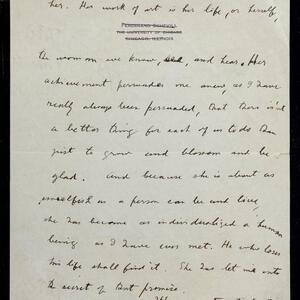 her. Her work of art is her life, or herself,
FERDINAND SCHEVILL
THE UNIVERSITY OF CHICAGO
CHICAGO, ILLINOIS
the woman we know, and hear. Her
achievement persuades me anew, as I have
really always been persuaded, that there isn't
a better thing for each of us to do than
just to grow and blossom and be
glad. And because she is about as
unselfish as a person can be and live,
she has become as individualized a human
being as I have ever met. He who loses
his life shall find it. She has let me into
the secret of that promise.